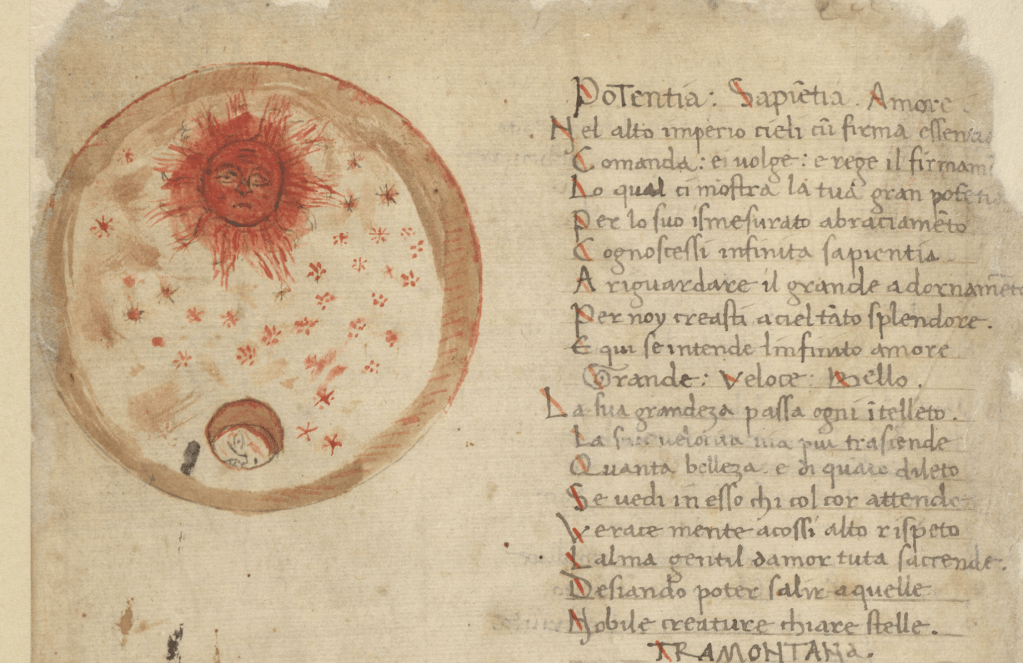 Potentia: Sapiẽtia. Amore
Nel alto imperio cieli cũ firma essentia
Comanda: ei volge: e rege il firmam
Lo qual ci mostra la tua gran potẽti
Per lo suo ismesurato abraciamẽto
Cognoscessi infinita sapientia
A riguardare il grande adornamẽto
Per noy creasti a ciel tãto splendore.
E qui se intende linfinito amore
Grande: Veloce: Bello.
La sua grandeza passa ogni ĩtelleto.
La sua via piu trasiende
Quanta belleza e di quato dileto
Se vedi in esso chi col cor attende
Verace mente acossi alto rispeto
Lalma gentil damor tuta sacrende.
Desiando poter salir aquelle
Nobile creature chiare stelle.
TRAMONTANA.